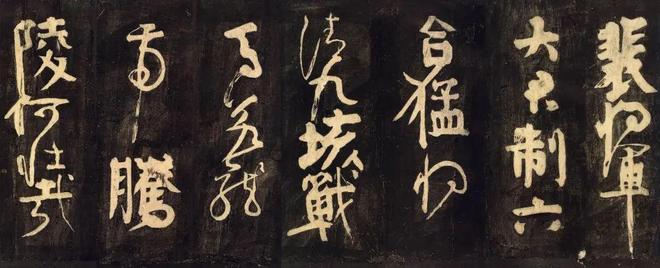 裴將軍
大君制六
合猛將
清九垓戰
馬若龍
虎騰
陵何壯哉